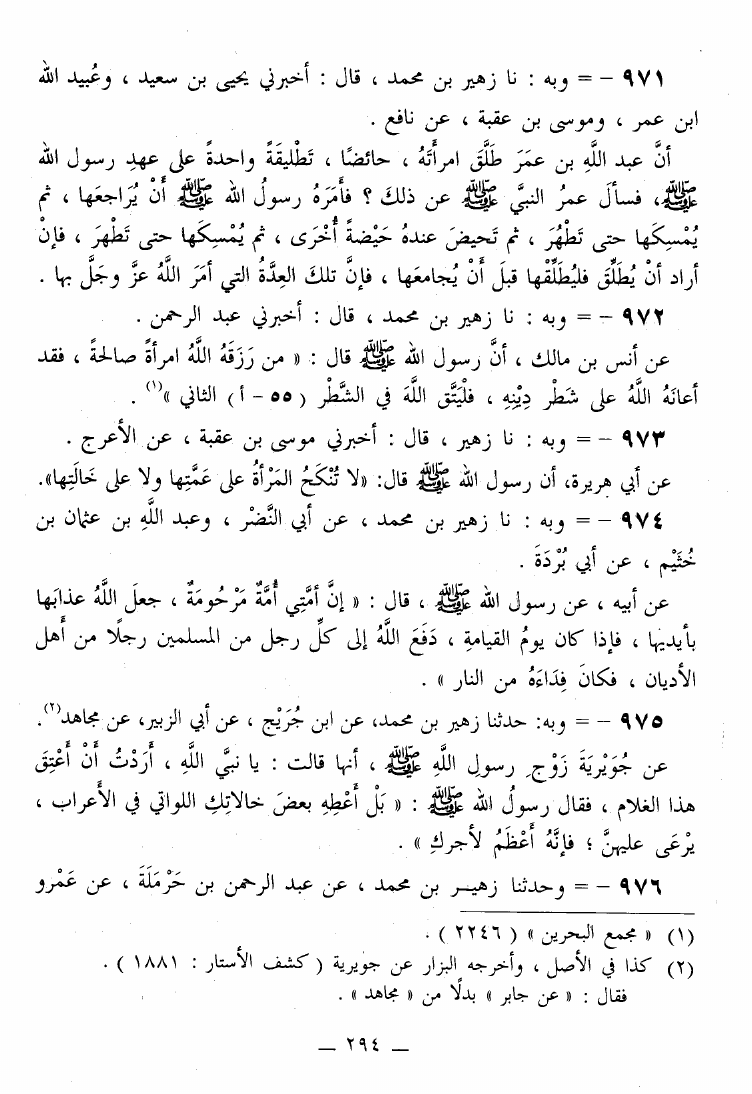 ٩٧١ – = وبه : نا زهير بن محمد ، قال : أخبرني يحيى بن سعيد ، وعُبيد الله
ابن عمر ، وموسى بن عقبة ، عن نافع .
أنَّ عبد اللَّهِ بن عمَرَ طَلَّقَ امرأَتَهُ ، حائضًا ، تَطْلِيقَةً واحدةً على عهدِ رسول الله
ﷺ، فسألَ عمرُ النبيَّ ﷺ عن ذلكَ ؟ فأمَرَهُ رسولُ الله ﷺ أَنْ يُرَاجعَها ، ثم
يُمْسِكَها حتى تَطْهُرَ ، ثم تَحيضَ عندهُ حَيْضةً أُخْرَى ، ثم يُمْسِكَها حتى تَطْهُرَ ، فإنْ
أراد أنْ يُطَلِّقَ فليُطَلِّقْها قبلَ أَنْ يُجامعَها ، فإنَّ تلكَ العِدَّةُ التي أمَرَ اللَّهُ عزَّ وجَلَّ بها .
٩٧٢ – = وبه : نا زهير بن محمد ، قال : أخبرني عبد الرحمن .
عن أنس بن مالك ، أنَّ رسول الله ﷺ قال : « من رَزَقَهُ اللَّهُ امرأةً صالحةً ، فقد
أعانَهُ اللَّهُ على شَطْرِ دِيْنِهِ ، فلْيَتَّقِ اللَّهَ في الشَّطْرِ ( ٥٥ – أ ) الثاني »(١) .
٩٧٣ – = وبه : نا زهير ، قال : أخبرني موسى بن عقبة ، عن الأعرج .
عن أبي هريرة، أن رسول الله ﷺ قال: «لا تُنْكَحُ المَرْأةُ على عَمَّتِها ولا على خَالَتِها».
٩٧٤ – = وبه : نا زهير بن محمد ، عن أبي النَّضْر ، وعبد اللَّهِ بن عثمان بن
خُثَيْم ، عن أبي بُرْدَةَ .
عن أبيه ، عن رسول الله ﷺ ، قال : « إنَّ أمَّتِي أُمَّةٌ مَرْحُومَةٌ ، جعلَ اللَّهُ عذابَها
بأيديها ، فإذا كان يومُ القيامةِ ، دَفَعَ اللَّهُ إلى كلِّ رجلٍ من المسلمين رجلًا من أهل
الأديان ، فكانَ فِدَاءَهُ من النار » .
٩٧٥ – = وبه: حدثنا زهير بن محمد، عن ابن جُرَيْج ، عن أبي الزبير، عن مجاهد(٢).
عن جُوَيْريَةَ زَوْجِ رسولِ اللَّهِ ﷺ ، أنها قالت : يا نبيَّ اللَّهِ ، أَرَدْتُ أَنْ أُعْتِقَ
هذا الغلام ، فقال رسولُ الله ﷺ : « بَلْ أَعْطِهِ بعضَ خالاتِكِ اللواتي في الأعراب ،
يرْعَى عليهنَّ ؛ فإنَّهُ أَعْظَمُ لأجركِ » .
٩٧٦ – = وحدثنا زهير بن محمد ، عن عبد الرحمن بن حَرْمَلَةَ ، عن عَمْرو
(١) « مجمع البحرين » ( ٢٢٤٦ ) .
(٢) كذا في الأصل ، وأخرجه البزار عن جويرية ( كشف الأستار : ١٨٨١ ) .
فقال : « عن جابر » بدلًا من « مجاهد » .
— ٢٩٤ —